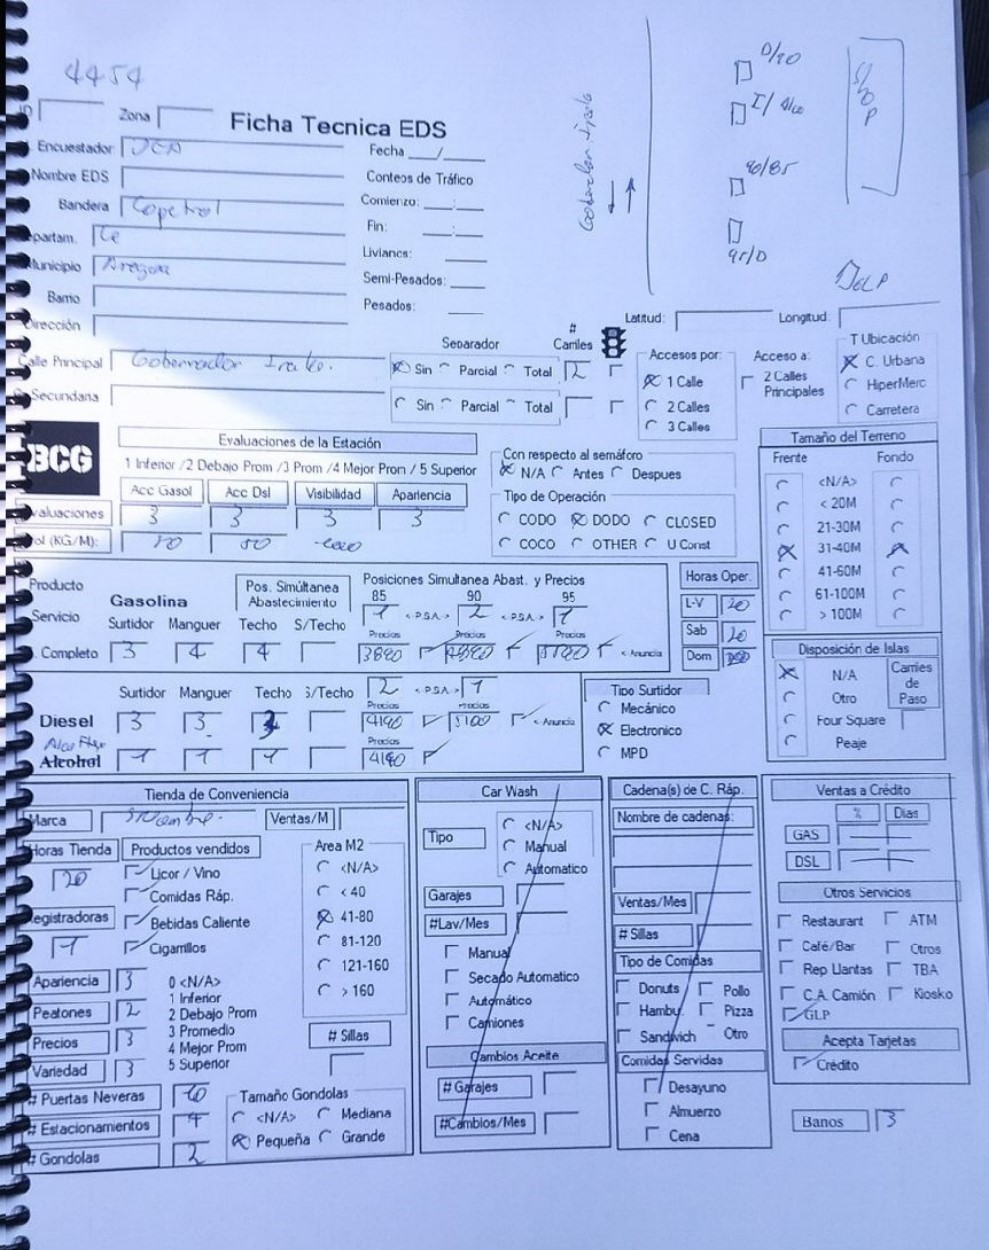 4454
D/90
I/Alco
90/85
95/D
SHOP
GLP
Zona
Ficha Tecnica EDS
Encuestador JCA
Fecha ___/___
Nombre EDS
Conteos de Tráfico
Bandera Copetrol
Comienzo: __:__
Departam. Ce
Fin: __:__
Municipio Aregua
Livianos: ___
Semi-Pesados: ___
Barrio
Pesados: ___
Dirección
Latitud: Longitud:
Calle Principal Gobernador Irala.
Separador # Carriles
Sin Parcial Total 2
Secundaria
Sin Parcial Total
Accesos por:
1 Calle
2 Calles
3 Calles
Acceso a:
2 Calles Principales
T Ubicación
C. Urbana
HiperMerc
Carretera
BCG
Evaluaciones de la Estación
1 Inferior /2 Debajo Prom /3 Prom /4 Mejor Prom / 5 Superior
Acc Gasol Acc Dsl Visibilidad Apariencia
Evaluaciones 3 3 3 3
Vol (KG/M): 50
Con respecto al semáforo
N/A Antes Despues
Tipo de Operación
CODO DODO CLOSED
COCO OTHER U Const
Tamaño del Terreno
Frente Fondo
<N/A>
< 20M
21-30M
31-40M
41-60M
61-100M
> 100M
Producto
Servicio
Gasolina
Pos. Simúltanea Abastecimiento
Posiciones Simultanea Abast. y Precios
85 90 95
1 <PSA> 2 <PSA> 1
Surtidor Manguer Techo S/Techo
Precios Precios Precios
Completo 3 4 4 3890 < Anuncia
Horas Oper.
L-V 20
Sab 20
Dom
Disposición de Islas
N/A
Otro
Four Square
Peaje
Carriles de Paso
Surtidor Manguer Techo S/Techo
2 <PSA> 1
Precios Precios
Diesel 3 3 4190 5100 < Anuncia
Alco Flex
Precios
Alcohol 1 1 1 4190
Tipo Surtidor
Mecánico
Electronico
MPD
Tienda de Conveniencia
Marca S/Nombre. Ventas/M
Horas Tienda
20
Productos vendidos
Licor / Vino
Comidas Ráp.
Bebidas Caliente
Cigarrillos
Registradoras
1
Area M2
<N/A>
< 40
41-80
81-120
121-160
> 160
Apariencia 3
Peatones 2
Precios 3
Variedad 3
0 <N/A>
1 Inferior
2 Debajo Prom
3 Promedio
4 Mejor Prom
5 Superior
# Sillas
# Puertas Neveras 10
# Estacionamientos 4
# Gondolas 2
Tamaño Gondolas
<N/A> Mediana
Pequeña Grande
Car Wash
Tipo
<N/A>
Manual
Automatico
Garajes
#Lav/Mes
Manual
Secado Automatico
Automático
Camiones
Cambios Aceite
# Garajes
#Cambios/Mes
Cadena(s) de C. Ráp.
Nombre de cadenas:
Ventas/Mes
# Sillas
Tipo de Comidas
Donuts Pollo
Hambu. Pizza
Sandwich Otro
Comidas Servidas
Desayuno
Almuerzo
Cena
Ventas a Crédito
% Dias
GAS
DSL
Otros Servicios
Restaurant ATM
Café/Bar Otros
Rep Llantas TBA
C.A. Camión Kiosko
GLP
Acepta Tarjetas
Crédito
Banos 3